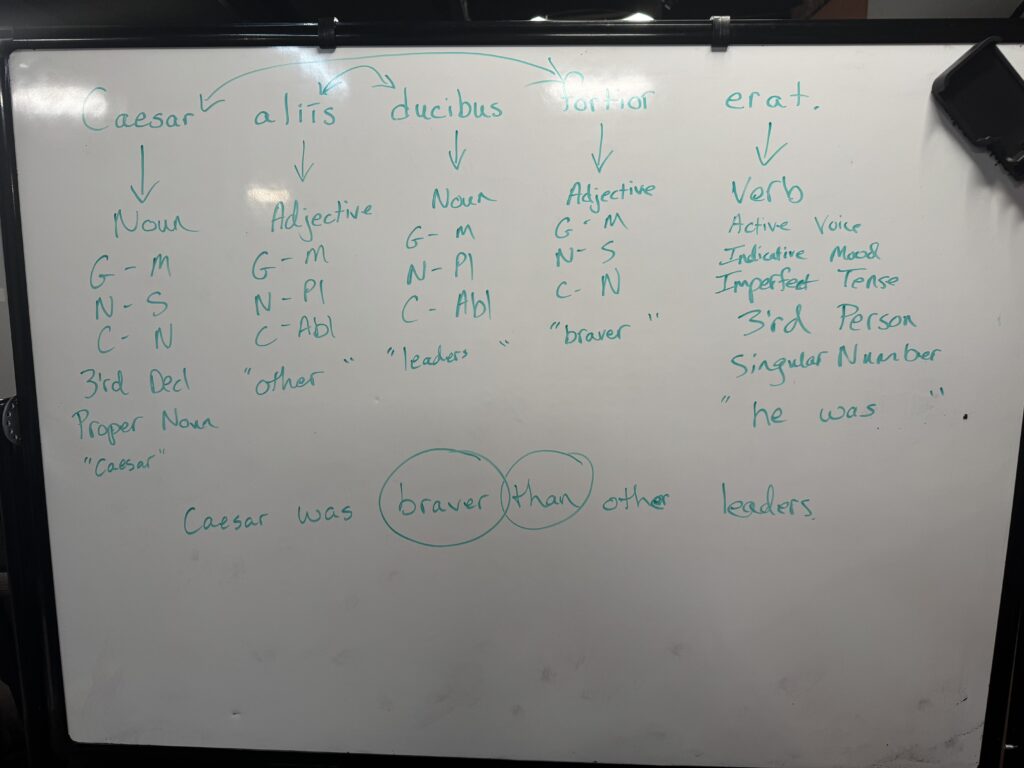 Caesar aliīs ducibus fortior erat.
Noun Adjective Noun Adjective Verb
G - M G - M G - M G - M Active Voice
N - S N - Pl N - Pl N - S Indicative Mood
C - N C - Abl C - Abl C - N Imperfect Tense
3'rd Decl "other" "leaders" "braver" 3'rd Person
Proper Noun Singular Number
"Caesar" "he was"
Caesar was braver than other leaders.